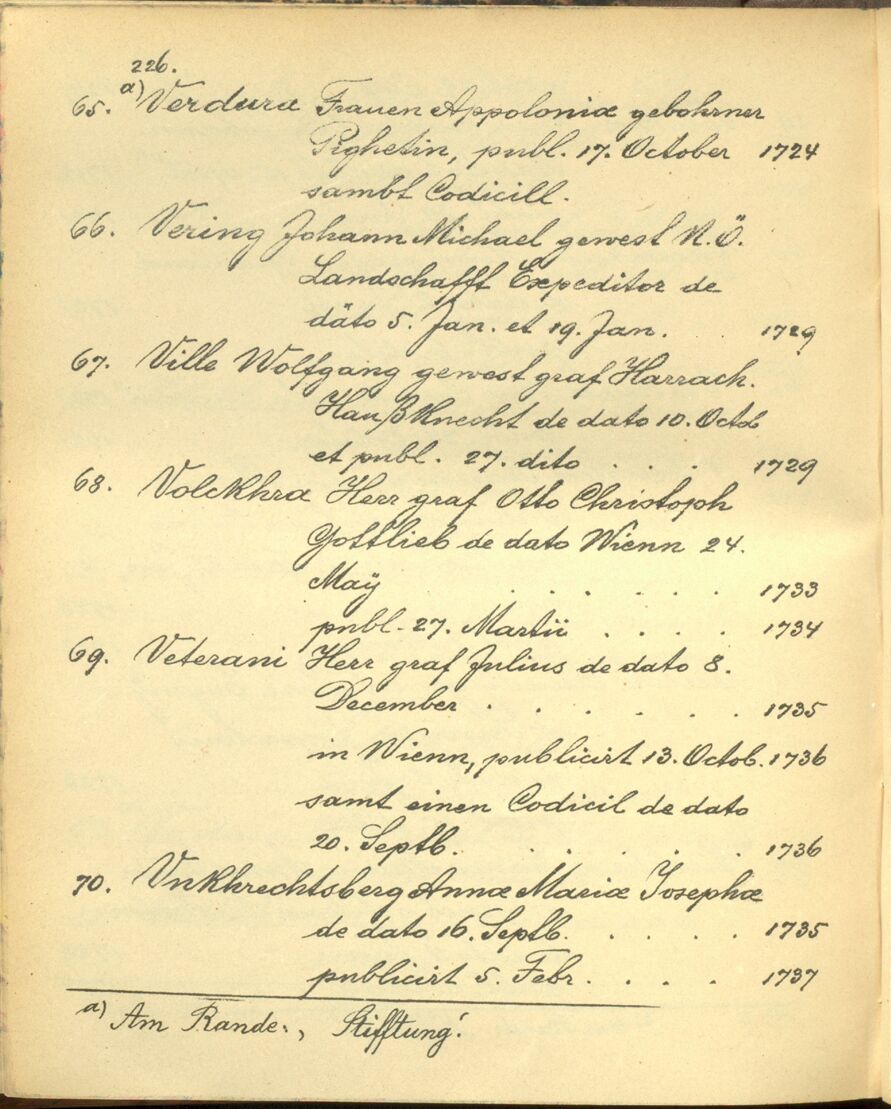 226.
65. a) Verdura Frauen Appoloniæ gebohrner
Pighetin, publ. 17. October 1724
sambt Codicill.
66. Vering Johann Michael gewest N.Ö.
Landschafft Expeditor de
däto 5. Jan. et 19. Jan. . 1729
67. Ville Wolfgang gewest graf Harrach.
Haußknecht de dato 10. Octob
et publ. 27. dito . . . 1729
68. Volckhra Herr graf Otto Christoph
Gottlieb de dato Wienn 24.
Maÿ . . . . . . 1733
publ. 27. Martii . . . . 1734
69. Veterani Herr graf Julius de dato 8.
December . . . . . . 1735
in Wienn, publicirt 13. Octob. 1736
samt einen Codicil de dato
20. Septb. . . . . . 1736
70. Vnkhrechtsberg Annæ Mariæ Josephæ
de dato 16. Septb. . . . . 1735
publicirt 5. Febr. . . . . 1737
a) Am Rande: „Stifftung“.